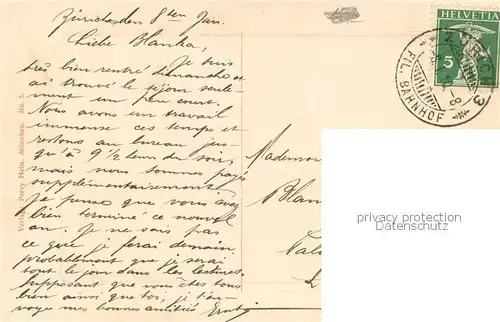 Zürich den 8ten Jan.
Liebe Blanka,
Je suis
très bien rentré dimanche et
ai trouvé le séjour seule-
ment un peu court.
Nous avons un travail
immense ces temps et
restons au bureau jus-
qu'à 9 1/2 heures du soir,
mais nous sommes payés
supplémentairement.
je pense que vous avez
bien terminé ce nouvel
an. Je ne sais pas
ce que je ferai demain,
probablement que je serai
tout le jour dans les
Supposant que vous êtes tous
bien ainsi que toi, je t'en-
voye mes bonnes amitiés Ernst
Mademoi
Blan
Verlag Percy Hein, München. No. 2.
HELVETIA
5
FIL. BAHNHOF
privacy protection
Datenschutz